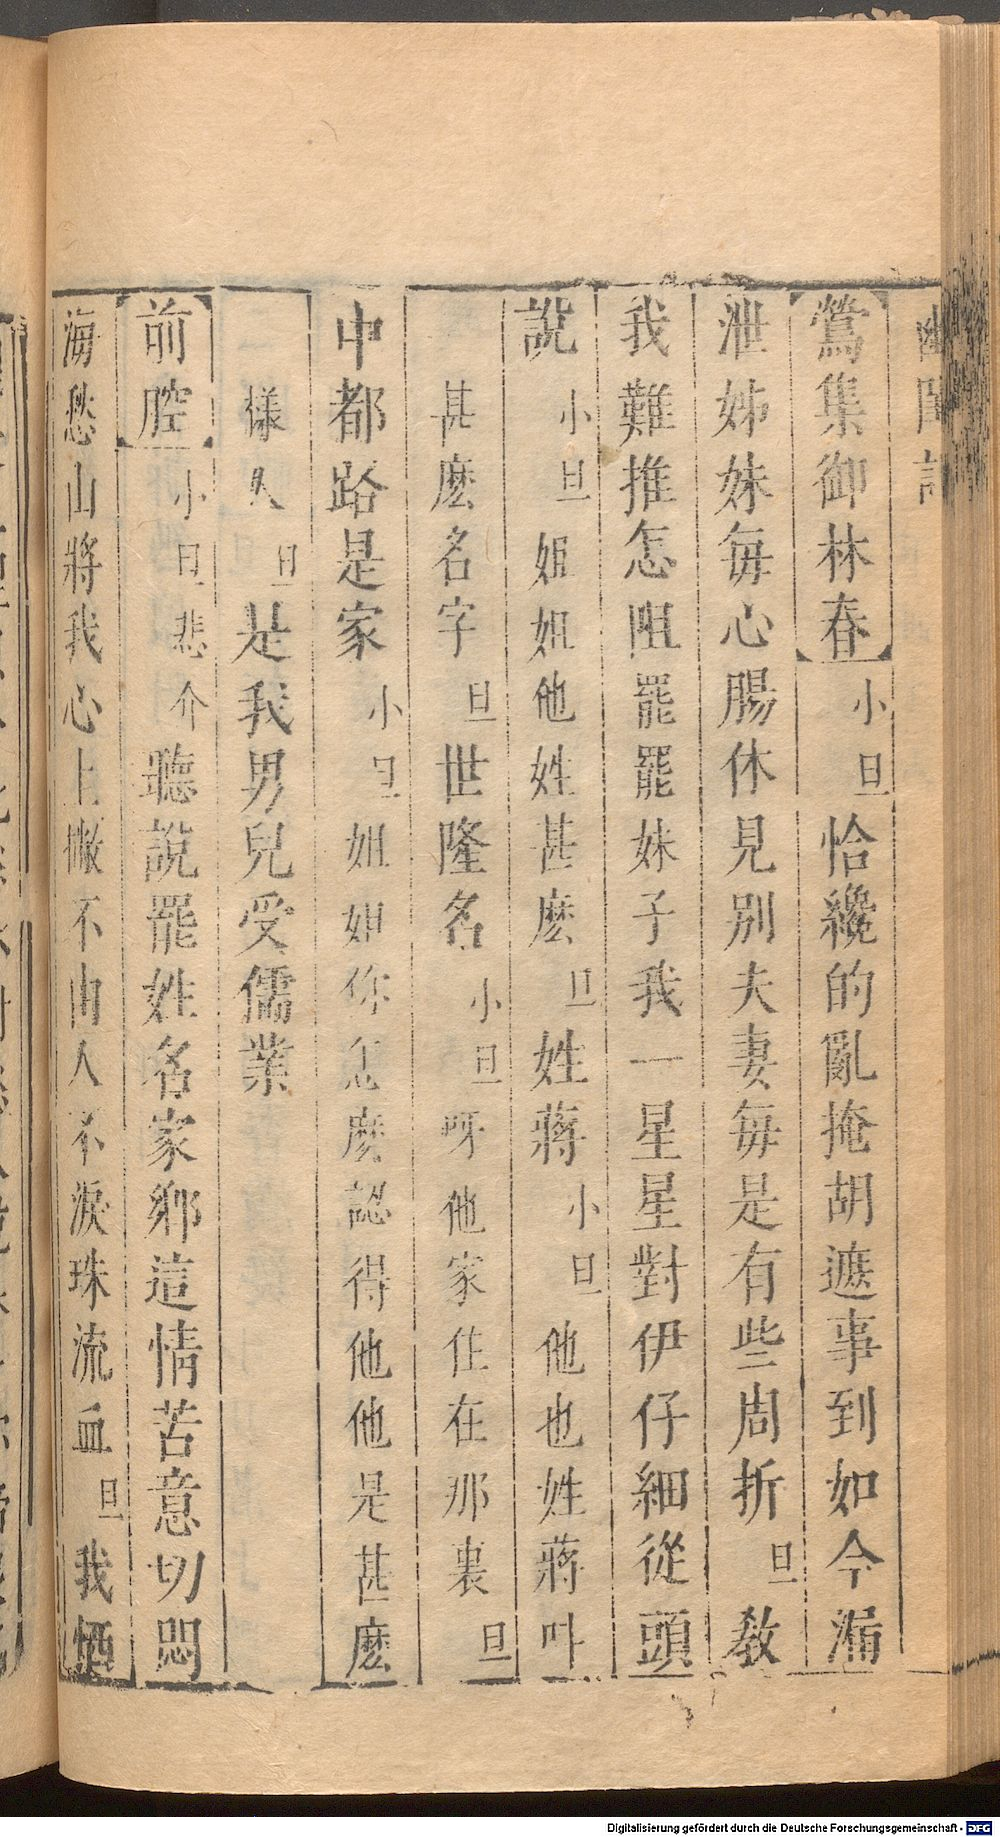 鶯集御林春小旦恰纔的亂掩胡遮事到如今漏
泄姊妹每心腸休見別夫妻每是有些周折旦教
我難推怎阻罷罷妹子我一星星對伊仔細從頭
說小旦姐姐他姓甚麽旦姓蔣小旦他也姓蔣叶
甚麽名字旦世隆名小旦呀他家住在那裏旦
中都路是家小旦姐姐你怎麽認得他他是甚麽
樣人旦是我男兒受儒業
前腔小旦悲介聽說罷姓名家鄉這情苦意切悶
海愁山將我心上撇不由人不淚珠流血旦我恓
Digitalisierung gefördert durch die Deutsche Forschungsgemeinschaft - DFG